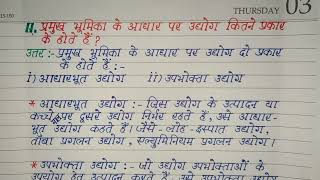 THURSDAY 03
11. प्रमुख भूमिका के आधार पर उद्योग कितने प्रकार
के होते हैं ?
उत्तर :- प्रमुख भूमिका के आधार पर उद्योग दो प्रकार
के होते हैं :-
i) आधारभूत उद्योग ii) उपभोक्ता उद्योग
* आधारभूत उद्योग :- जिस उद्योग के उत्पादन या
कच्चे पर दूसरे उद्योग निर्भर रहते हैं, उसे आधार-
भूत उद्योग कहते हैं। जैसे - लौह-इस्पात उद्योग,
तांबा प्रगलन उद्योग, एल्युमिनियम प्रगलन उद्योग।
* उपभोक्ता उद्योग :- जो उद्योग उपभोक्ताओं के
उपयोग हेतु उत्पादन करते हैं, उसे उपभोक्ता